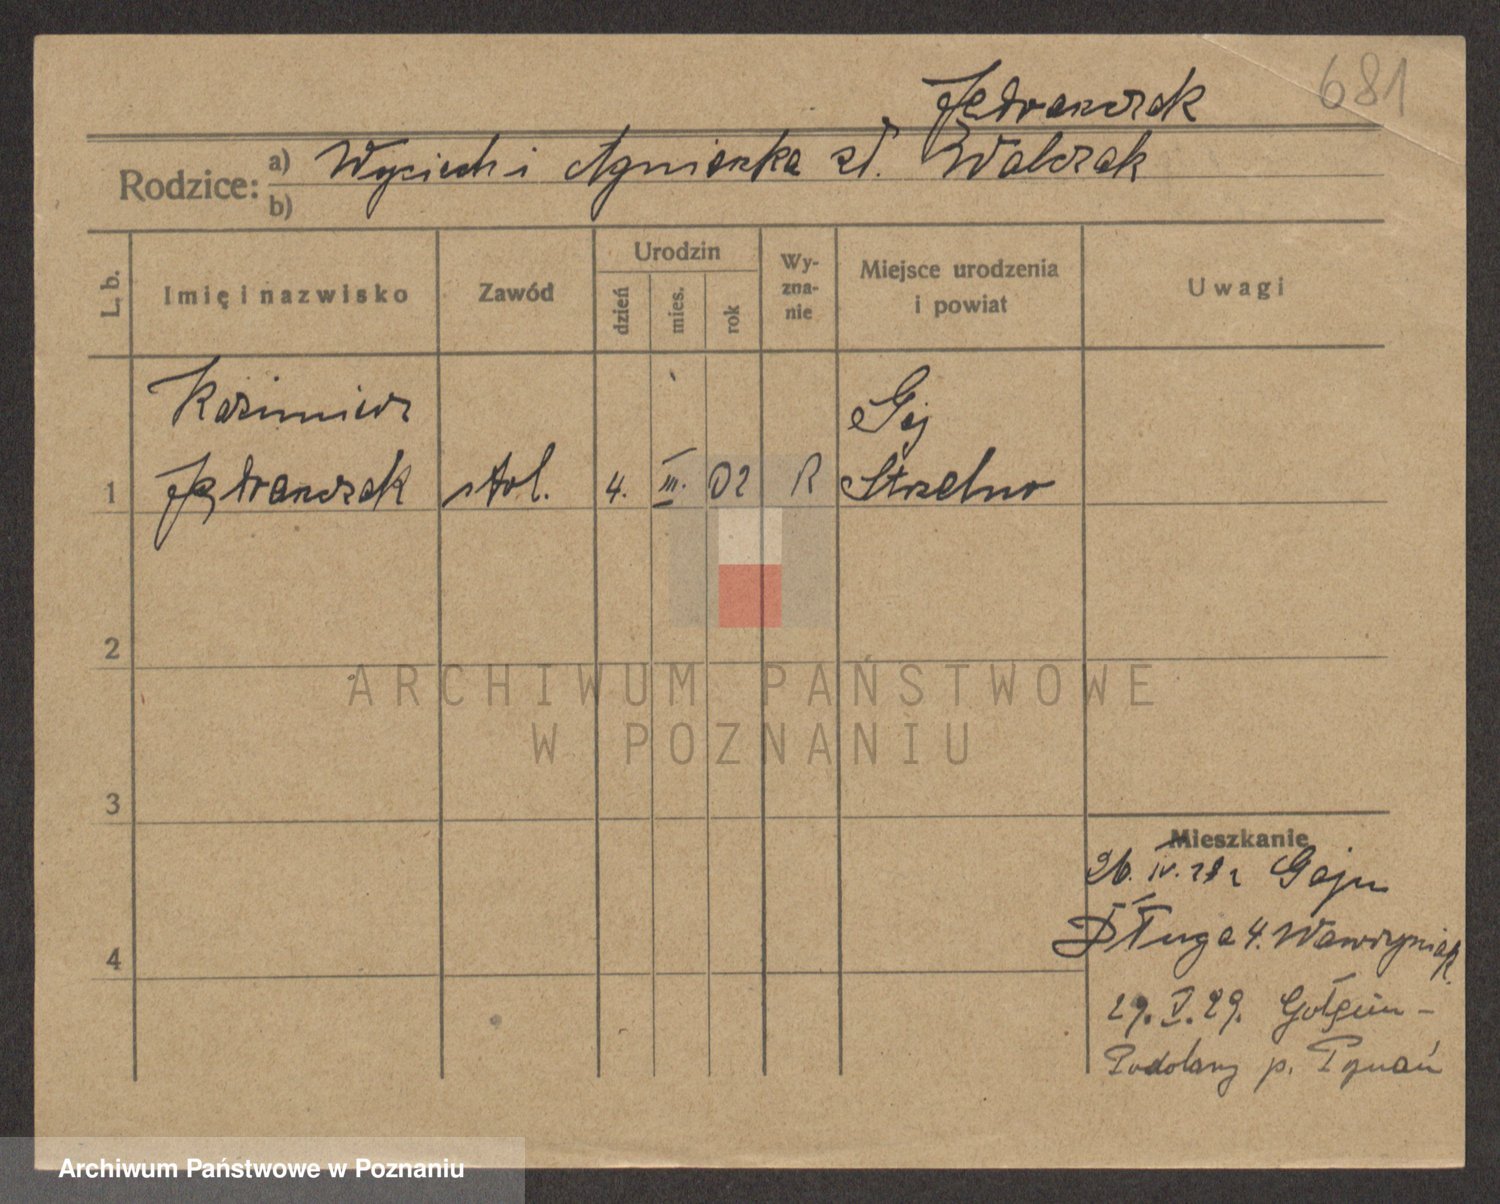 681
Jędranczak
Rodzice: a) Wojciech i Agnieszka zd. Walczak
b)
L. b.
Imię i nazwisko
Zawód
Urodzin
dzień
mies.
rok
Wy-
zna-
nie
Miejsce urodzenia
i powiat
Uwagi
Kazimierz
Gaj
1 Jędranczak stol. 4. III. 02 R Strzelno
2
ARCHIWUM PAŃSTWOWE
W POZNANIU
3
Mieszkanie
26. IV. Gaju
4
Długa 4. Wawrzyniak
29. V. 29. Golęcin -
Podolany p. Poznań
Archiwum Państwowe w Poznaniu